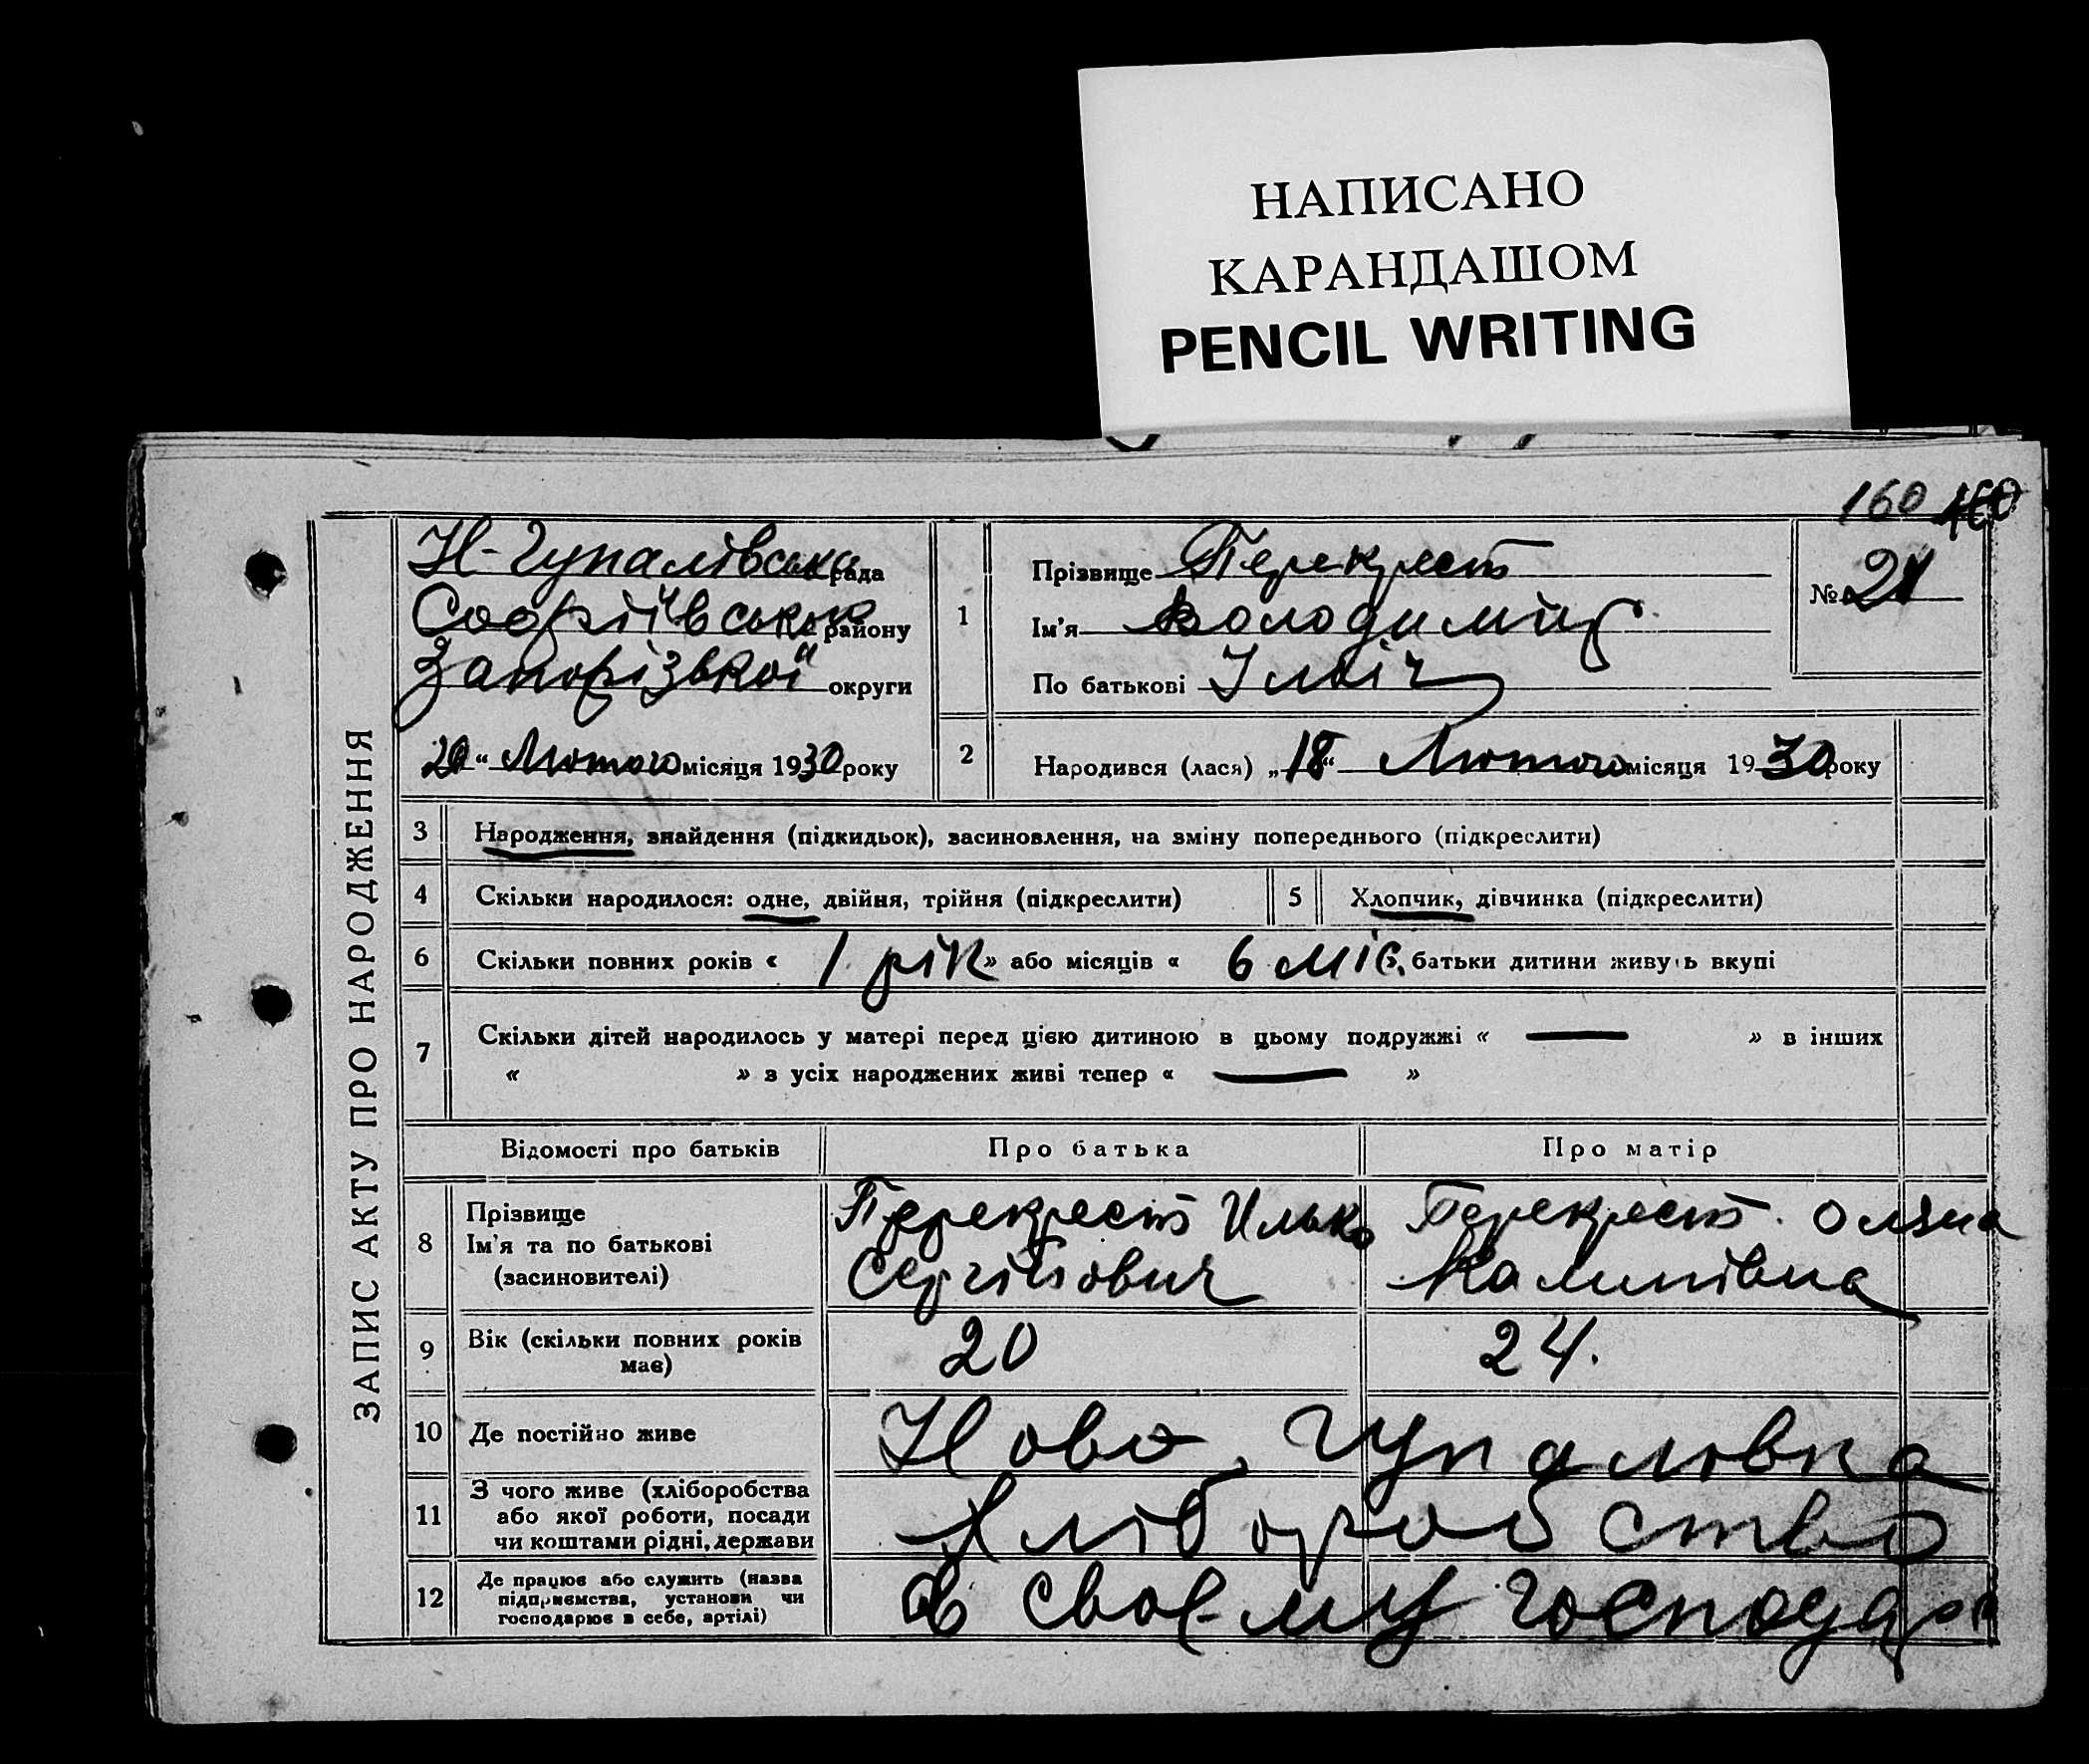 НАПИСАНО
КАРАНДАШОМ
PENCIL WRITING
160 160
ЗАПИС АКТУ ПРО НАРОДЖЕННЯ
Н-Гупалівська рада
Софіївського району
Запорізької округи
20 “ Лютого місяця 1930 року
1
Прізвище Перекрест
Ім'я Володимир
По батькові Ілліч
№ 21
2
Народився (лася) „18“ Лютого місяця 1930 року
3 Народження, знайдення (підкидьок), засиновлення, на зміну попереднього (підкреслити)
4 Скільки народилося: одне, двійня, трійня (підкреслити) 5 Хлопчик, дівчинка (підкреслити)
6 Скільки повних років « 1 рік » або місяців « 6 міс. батьки дитини живуть вкупі
7 Скільки дітей народилось у матері перед цією дитиною в цьому подружжі « — » в інших
« » з усіх народжених живі тепер « — »
Відомості про батьків Про батька Про матір
8 Прізвище
Ім'я та по батькові
(засиновителі)
Перекрест Илько
Сергійович
Перекрест. Оляна
Калинівна
9 Вік (скільки повних років
має)
20 24.
10 Де постійно живе Ново Гупаловка
11 З чого живе (хліборобства
або якої роботи, посади
чи коштами рідні, держави
Хліборобство
12 Де працює або служить (назва
підприємства, установи чи
господарює в себе, артілі)
В своему господар